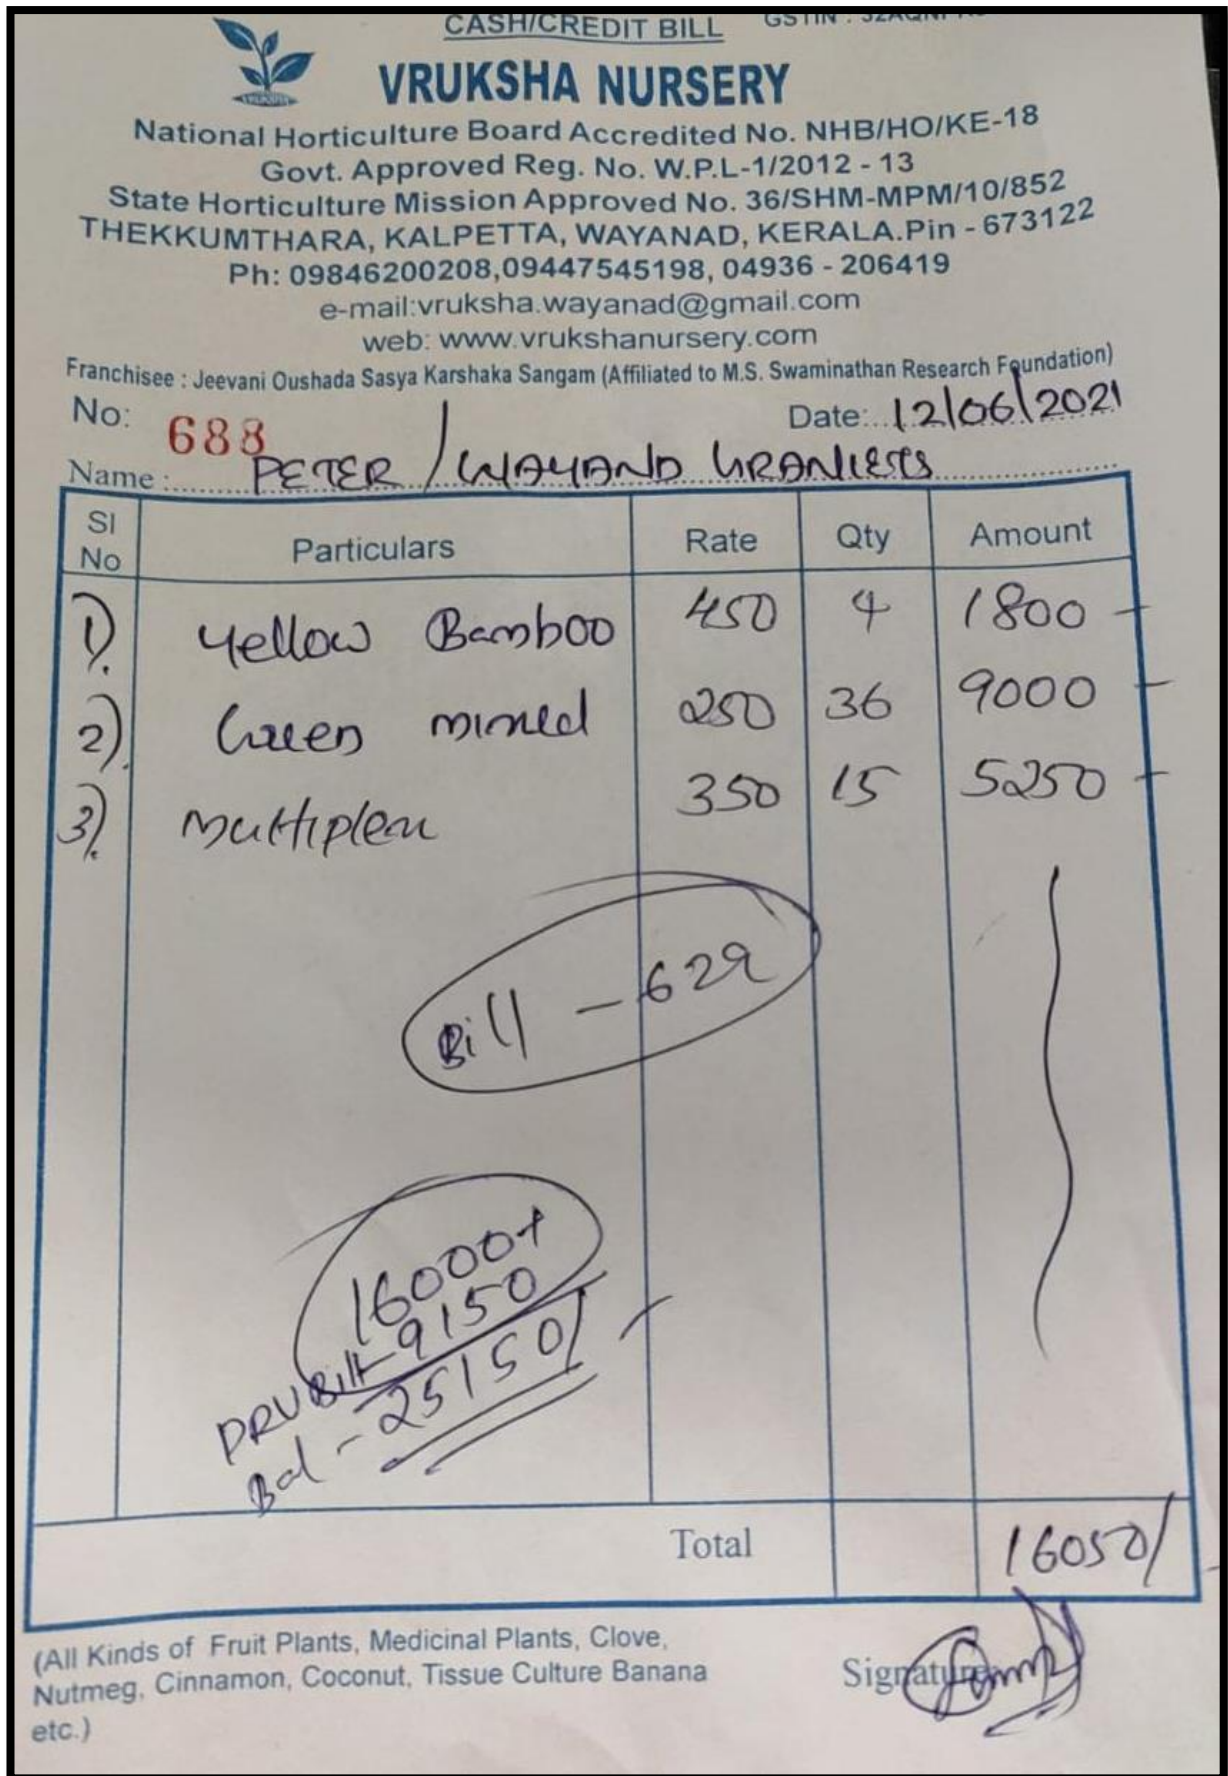 CASH/CREDIT BILL
VRUKSHA
VRUKSHA NURSERY
National Horticulture Board Accredited No. NHB/HO/KE-18
Govt. Approved Reg. No. W.P.L-1/2012 - 13
State Horticulture Mission Approved No. 36/SHM-MPM/10/852
THEKKUMTHARA, KALPETTA, WAYANAD, KERALA.Pin - 673122
Ph: 09846200208,09447545198, 04936 - 206419
e-mail:vruksha.wayanad@gmail.com
web: www.vrukshanursery.com
Franchisee : Jeevani Oushada Sasya Karshaka Sangam (Affiliated to M.S. Swaminathan Research Foundation)
No: 688 Date: 12/06/2021
Name : PETER / WAYAND
Sl No Particulars Rate Qty Amount
1). Yellow Bamboo 450 4 1800 -
2). Green mixed 250 36 9000 -
3). Multiplex 350 15 5250 -
Bill - 629
16000+
PRV Bill- 9150
Bal - 25150/-
Total 16050/-
(All Kinds of Fruit Plants, Medicinal Plants, Clove,
Nutmeg, Cinnamon, Coconut, Tissue Culture Banana
etc.)
Signature